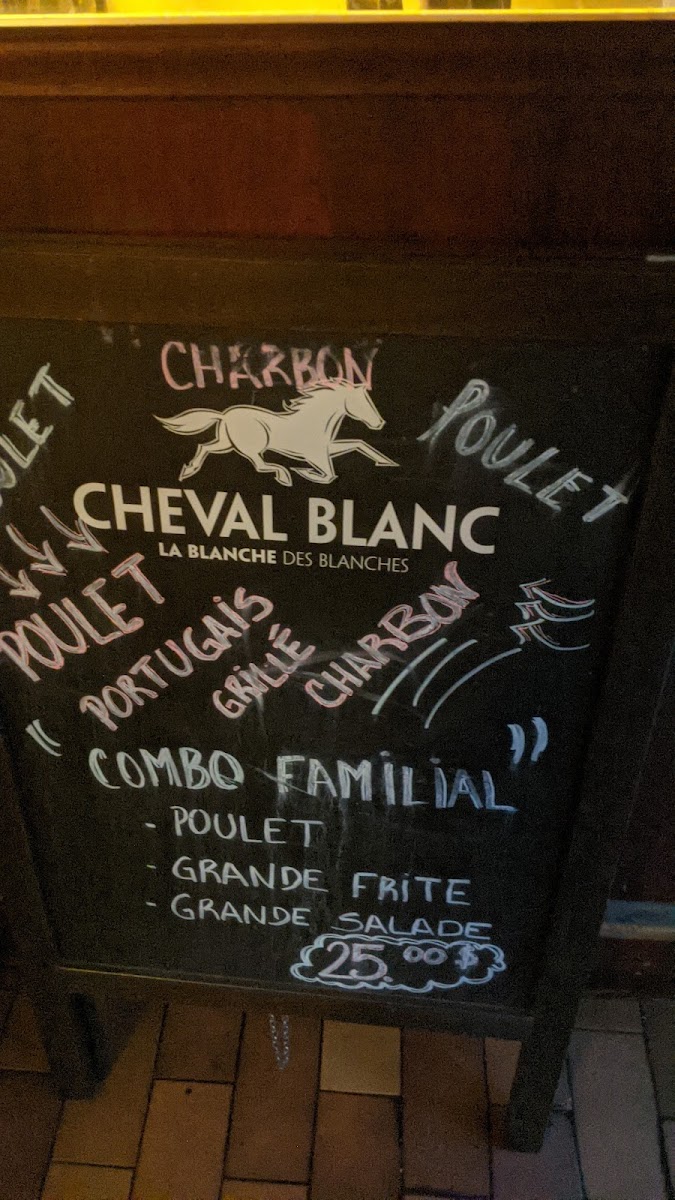 CHARBON
POULET
CHEVAL BLANC
LA BLANCHE DES BLANCHES
POULET
PORTUGAIS
GRILLÉ
CHARBON
"COMBO FAMILIAL"
- POULET
- GRANDE FRITE
- GRANDE SALADE
25.00$